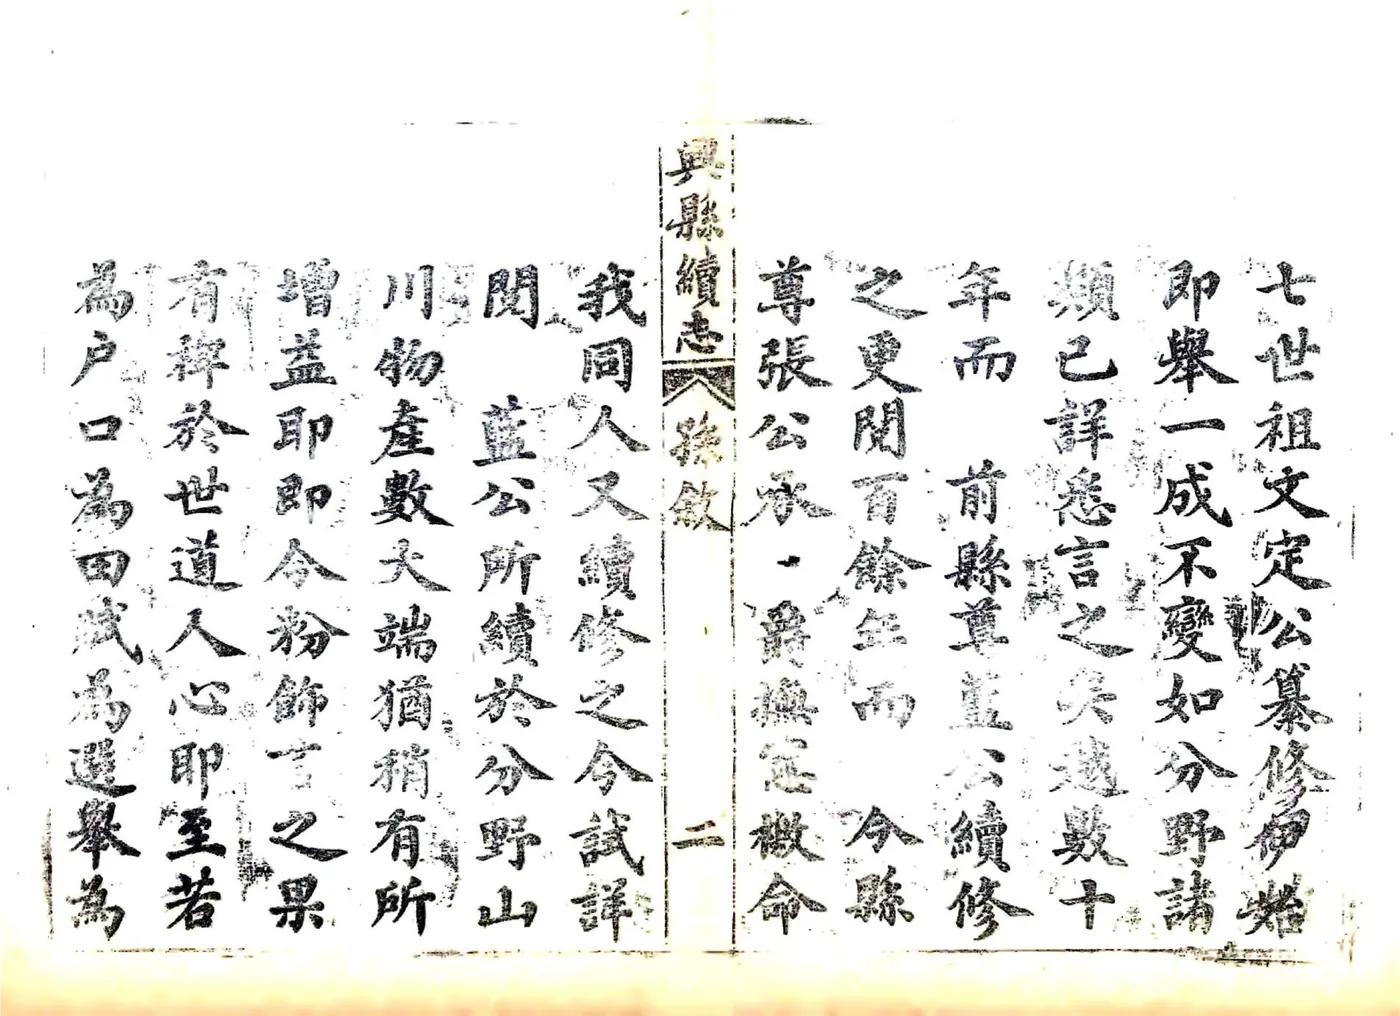 七世祖文定公纂修伊始
即舉一成不變如分野諸
類已詳悉言之矣越數十
年而 前縣尊藍公續修
之更閱百餘年而 今縣
尊張公承 爵撫憲檄命
興縣續志 孫敘 二
我同人又續修之今試詳
閱 藍公所續於分野山
川物產數大端猶稍有所
增益耶即令粉飾言之果
有裨於世道人心耶至若
為户口為田賦為選舉為